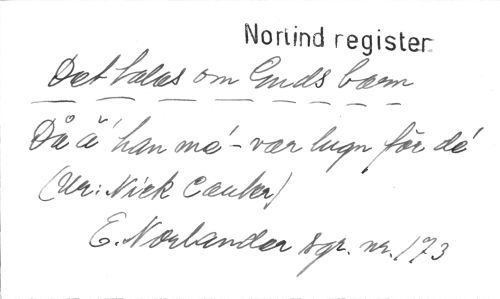 Norlind register
Det talas om Guds barm
Då ä' han me' - var lugn för dé
(Ur: Nick Carter)
E. Norlander sgr. nr. 173